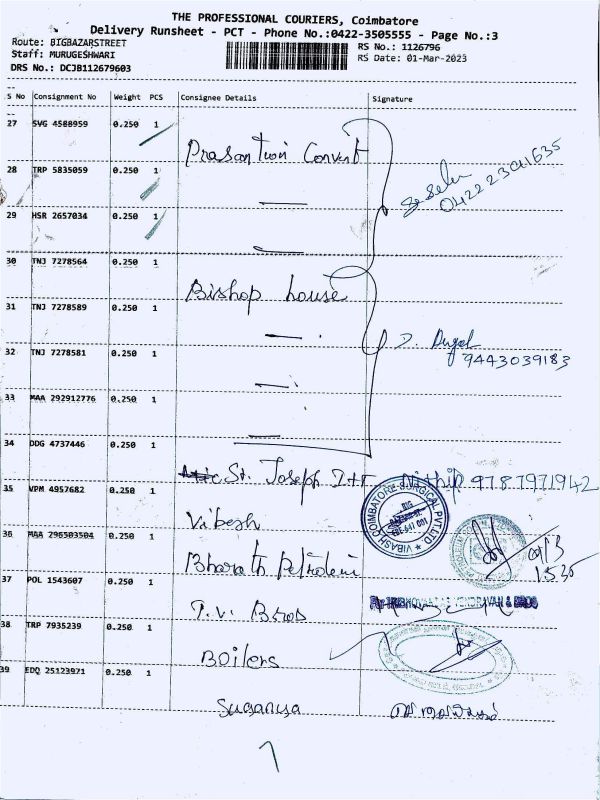 THE PROFESSIONAL COURIERS, Coimbatore
Delivery Runsheet - PCT - Phone No.:0422-3505555 - Page No.:3
Route: BIGBAZARSTREET
RS No.: 1126796
Staff: MURUGESHWARI
RS Date: 01-Mar-2023
DRS No.: DCJB112679603
S No Consignment No Weight PCS Consignee Details Signature
27 SVG 4588959 0.250 1
Prasantion Convent
28 TRP 5835059 0.250 1
04222301635
29 HSR 2657034 0.250 1
30 TNJ 7278564 0.250 1
Bishop house
31 TNJ 7278589 0.250 1
9443039183
32 TNJ 7278581 0.250 1
33 MAA 292912776 0.250 1
34 DDG 4737446 0.250 1
St. Joseph Nithip 9787971942
35 VPM 4957682 0.250 1
Vibesh
VIBASH COIMBATORE SURGICAL PVT.LTD
36 MAA 296503504 0.250 1
Bharath Petroleum
1535
37 POL 1543607 0.250 1
T.V. Bros
38 TRP 7935239 0.250 1
Boilers
39 EDQ 25123971 0.250 1
Suganya